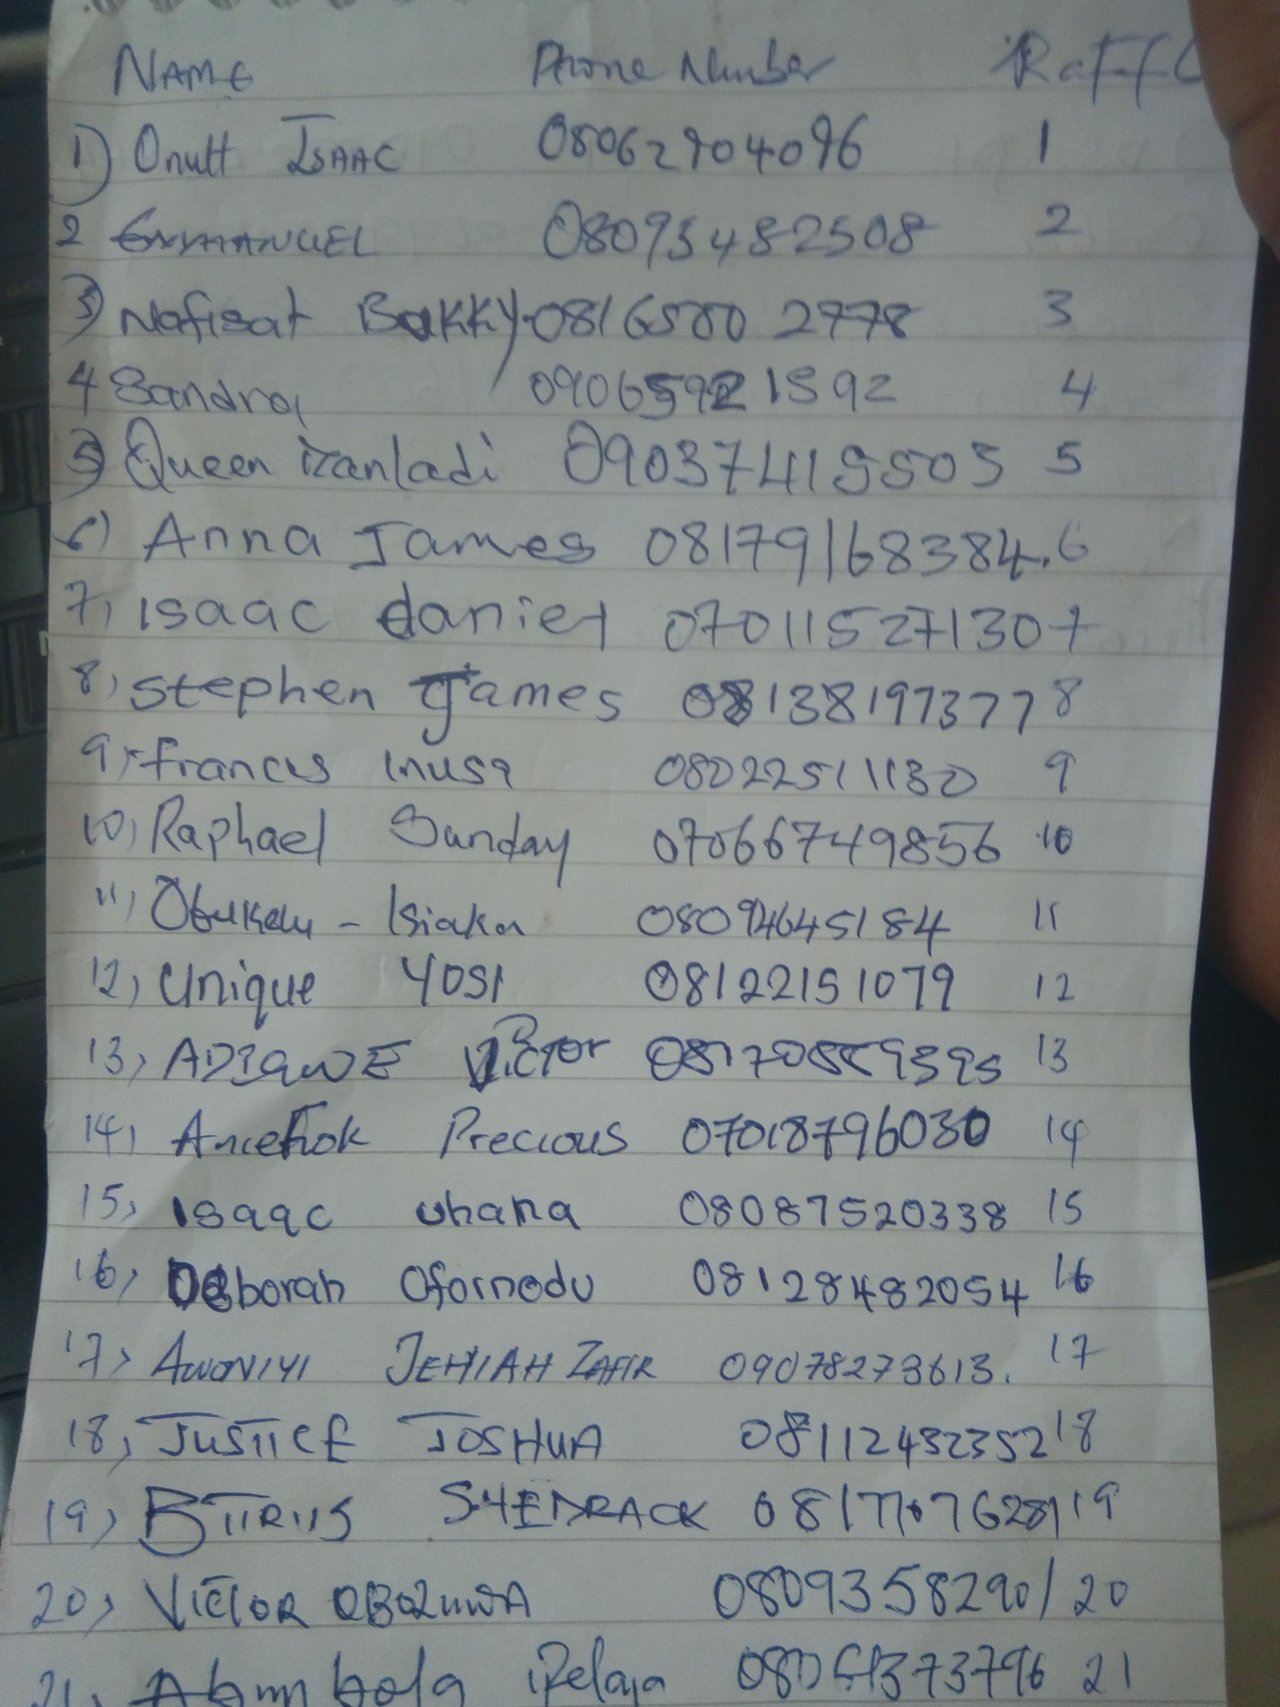 NAME Phone Number Raffl
1) Onutt ISAAC 08062904096 1
2 EMMANUEL 08093482508 2
3) Nafisat Bakky 08165802778 3
4 Sandra 4
5) Queen izanladi 09037415503 5
6) Anna James 08179168384. 6
7, Isaac daniel 07011527130 7
8, Stephen James 08138197377 8
9, francis inusa 08022511130 9
10, Raphael Sunday 07066749856 10
11, - Isiaka 08094645184 11
12, Unique YOSI 08122151079 12
13, Victor 13
14, Precious 07018796030 14
15, Isaac uhana 08087520338 15
16, Deborah Ofornedu 08128482054 16
17, AWONIYI JEHIAH ZAFIR 09078273613. 17
18, JUSTICE JOSHUA 08112432352 18
19, BITRUS SHEDRACK 19
20, VICTOR 08093582901 20
21, 21